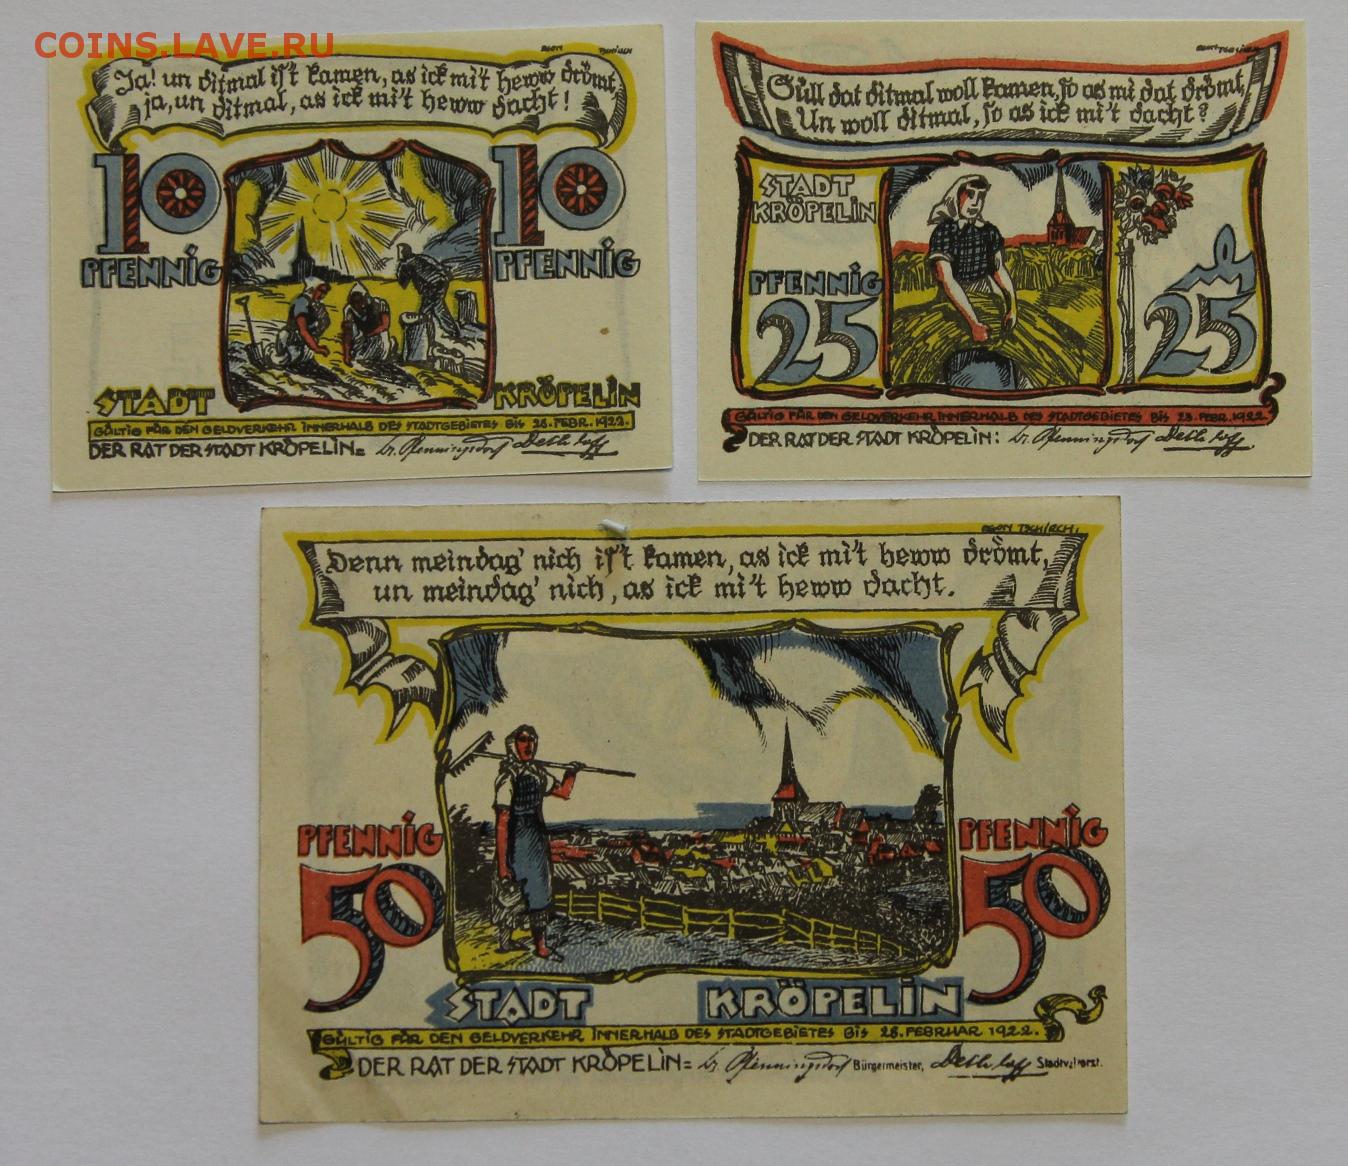 COINS.LAVE.RU
EGON TSCHIRCH
Ja! un ditmal is't kamen, as ick mi't heww drömt,
ja, un ditmal, as ick mi't heww dacht!
10 10
PFENNIG PFENNIG
STADT KRÖPELIN
GÜLTIG FÜR DEN GELDVERKEHR INNERHALB DES STADTGEBIETES BIS 28. FEBR. 1922.
DER RAT DER STADT KRÖPELIN=
EGON TSCHIRCH
Süll dat ditmal woll kamen, so as mi dat drömt,
Un woll ditmal, so as ick mi't dacht?
STADT
KRÖPELIN
PFENNIG
25 25
GÜLTIG FÜR DEN GELDVERKEHR INNERHALB DES STADTGEBIETES BIS 28. FEBR. 1922.
DER RAT DER STADT KRÖPELIN:
EGON TSCHIRCH.
Denn meindag' nich is't kamen, as ick mi't heww drömt,
un meindag' nich, as ick mi't heww dacht.
PFENNIG PFENNIG
50 50
STADT KRÖPELIN
GÜLTIG FÜR DEN GELDVERKEHR INNERHALB DES STADTGEBIETES BIS 28. FEBRUAR 1922.
DER RAT DER STADT KRÖPELIN= Bürgermeister, Stadtv.